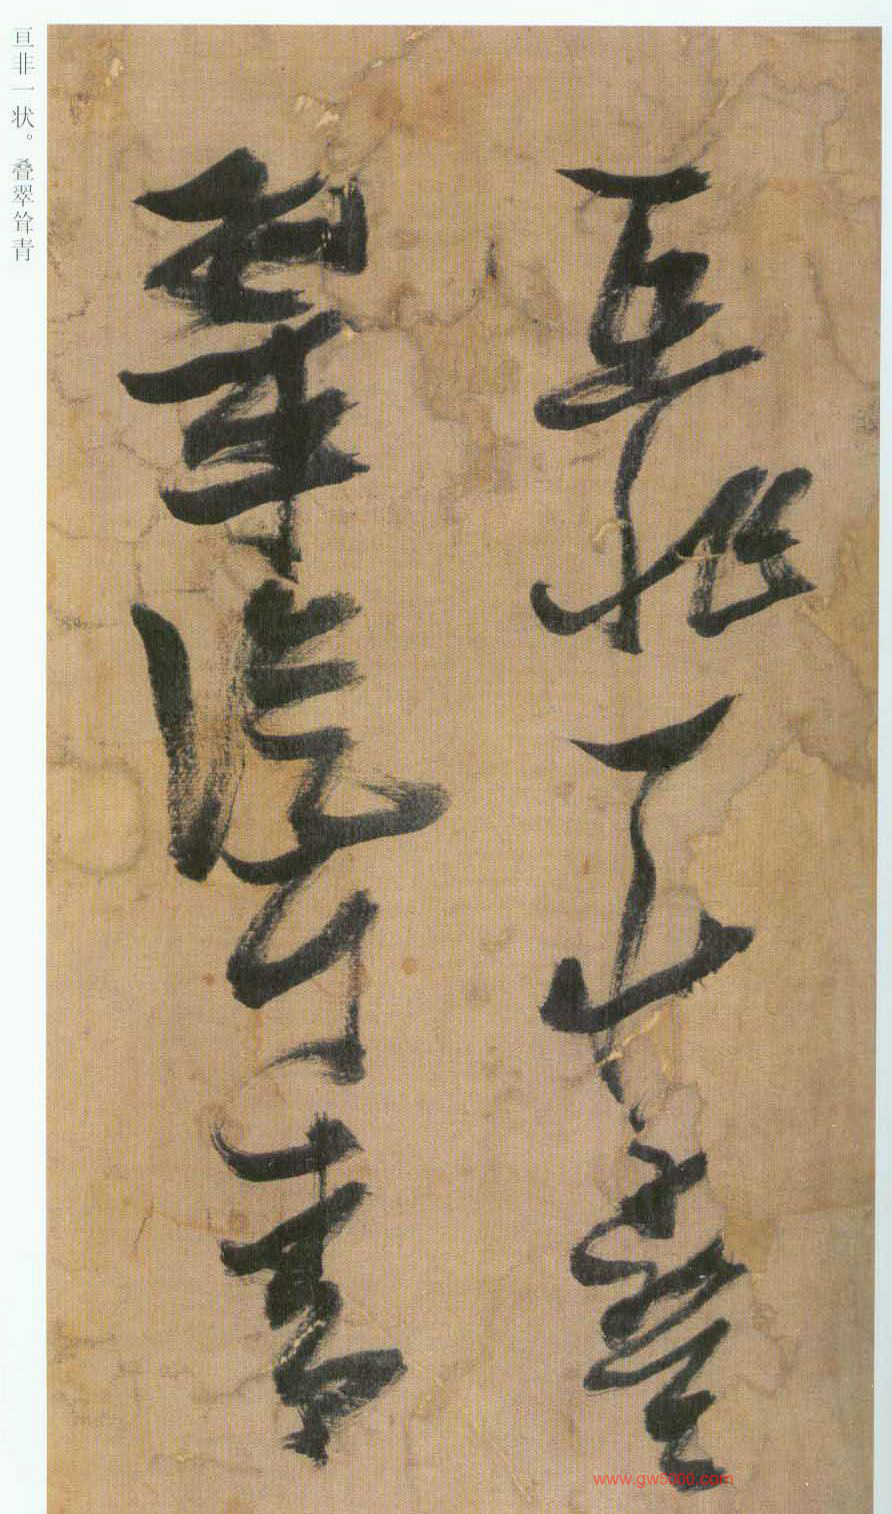 亘非一狀疊
翠聳青
亘非一状。叠翠耸青
www.gw5000.com